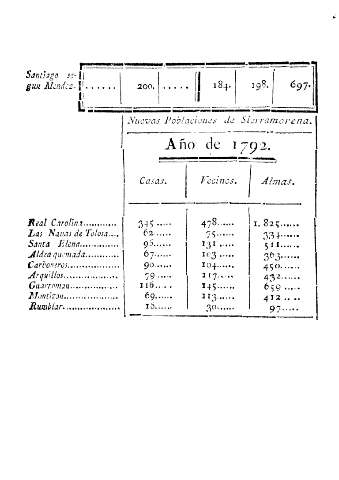 Santiago se-
gun Mendez. ...... 200. ..... 184. 198. 697.
Nuevas Poblaciones de Sierramorena.
Año de 1792.
Casas. Vecinos. Almas.
Real Carolina........... 345..... 478...... 1.825......
Las Navas de Tolosa.... 62..... 75..... 334......
Santa Elena............. 96..... 131..... 511......
Aldeaquemada........... 67..... 103..... 383......
Carboneros.............. 90..... 104..... 450......
Arquillos................ 79..... 117..... 432......
Guarroman.............. 116..... 145...... 659.....
Montizon................ 69..... 113..... 412.....
Rumblar................. 30..... 97.....